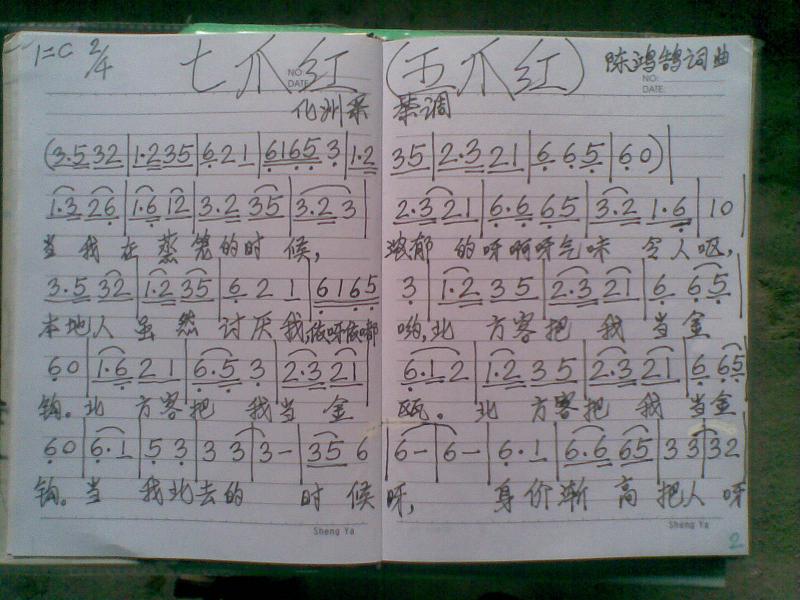 1=C 2/4 七爪红 (五爪红) 陈鸿鹄词曲
NO: DATE: NO: DATE:
化州采茶调
(3.532|1.235|621|61653|1.2 35|2.321|6 6.5|60)|
1.326|1.612|3.235|3.23| 2.321|6.665|3.21.6|10
当我在蒸笼的时候, 浓郁的呀啊呀气味令人呕,
3.532|1.235|621|6165 3|1.235|2.321|6 6.5|
本地人虽然讨厌我,依呀依嘟哟,北方客把我当金
60|1.621|6.53|2.321| 6.12|1.235|2.321|6 65
钩。北方客把我当金瓯。北方客把我当金
60|6.1|53|33|3-|356 |6-|6-|6.1|6.665|33|32
钩。当我北去的时候呀, 身价渐高把人呀
Sheng Ya Sheng Ya
2